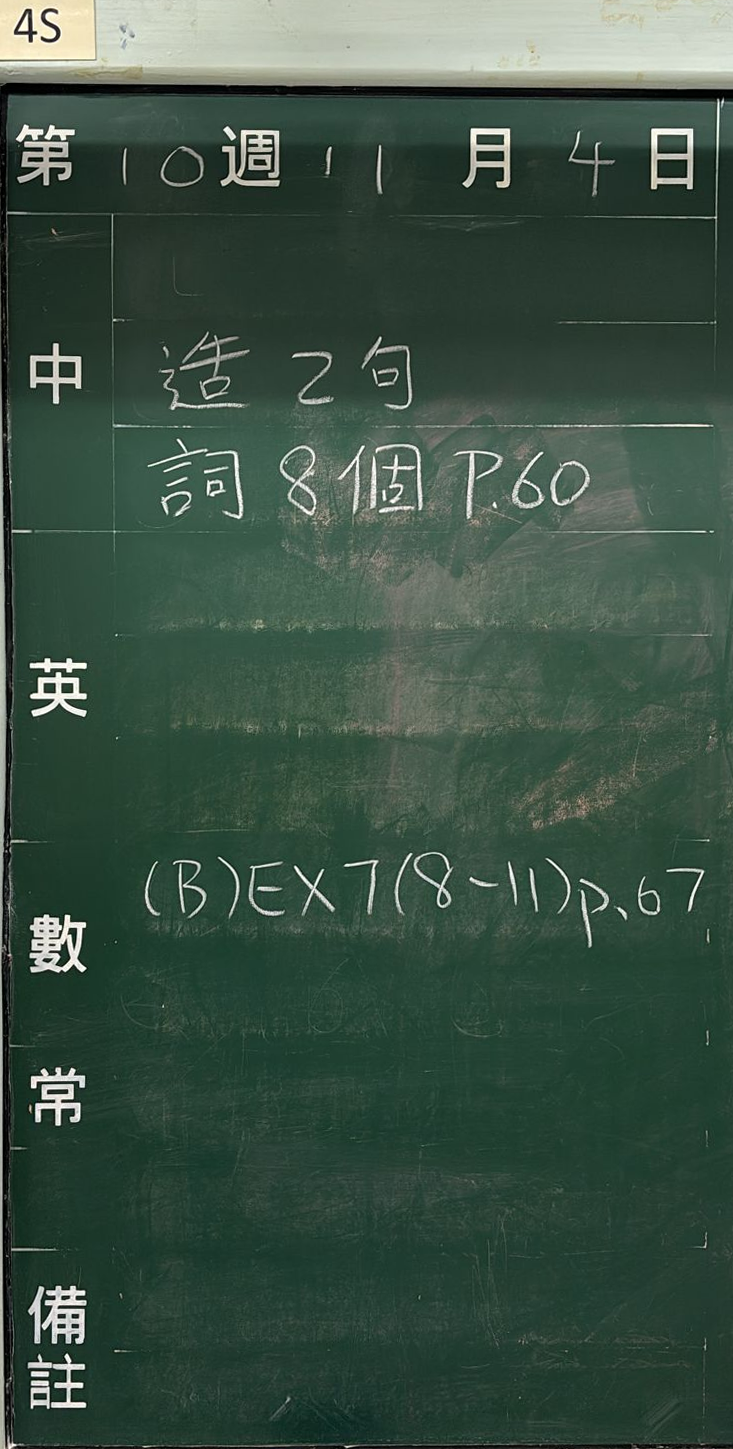 4S
第10週11月4日
中
造2句
詞8個 P.60
英
數
(B)EX7(8-11)p.67
常
備註